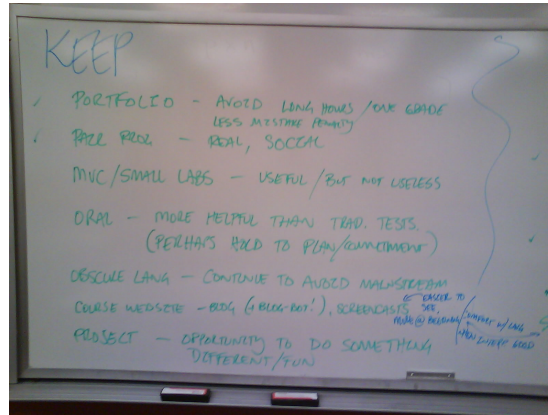 KEEP
PORTFOLIO - AVOID LONG HOURS / ONE GRADE
LESS MISTAKE PENALTY
PAIR PROG - REAL, SOCIAL
MVC/SMALL LABS - USEFUL / BUT NOT USELESS
ORAL - MORE HELPFUL THAN TRAD. TESTS.
(PERHAPS HOLD TO PLAN/COMMITMENT)
OBSCURE LANG - CONTINUE TO AVOID MAINSTREAM
COURSE WEBSITE - BLOG (+ BLOG-BOT!), SCREENCASTS
EASIER TO
SEE,
PROJECT - OPPORTUNITY TO DO SOMETHING
DIFFERENT/FUN